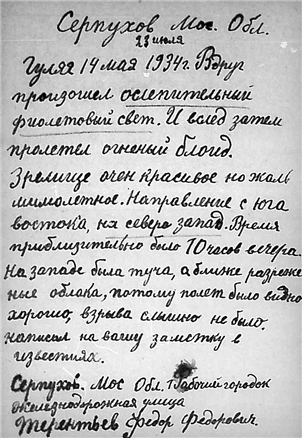 Серпухов Мос. Обл.
23 июля
Гуляя 14 мая 1934г. Вдруг
произошел ослепительный
фиолетовый свет. И вслед затем
пролетел огненый
Зрелище очен красивое но жаль
мимолетное. Направление с юга
востока, на северо запад. Время
приблизительно было 10 часов вечера.
На западе была туча, а ближе разрежен
ные облака, потому полет было видно
хорошо, взрыва слышно не было.
написал на вашу заметку в
известиях.
Серпухов. Мос Обл. Рабочий городок
железнодорожная улица
Терентьев Федор Федорович.